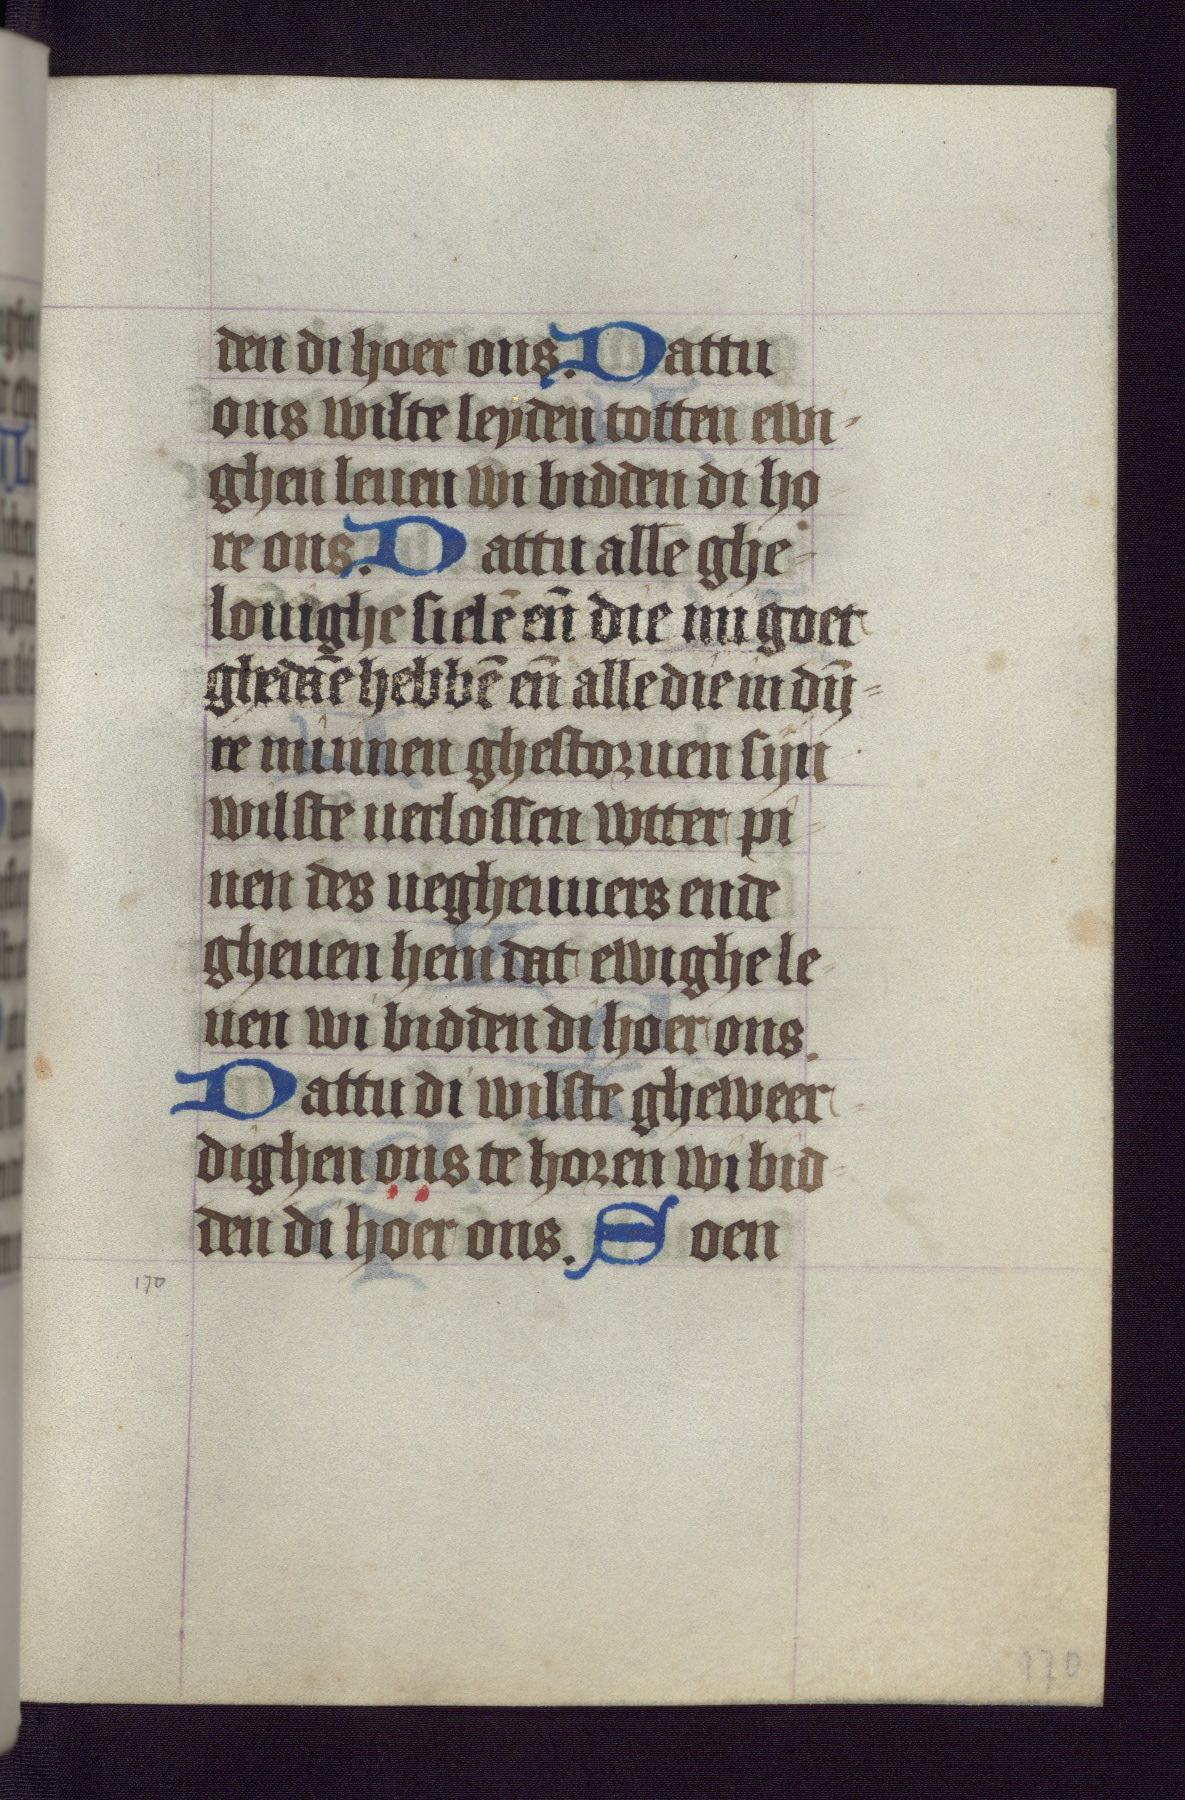 den di hoer ons. Dattu
ons wilste leyden totten ewi-
ghen leuen wi bidden di ho-
re ons. Dattu alle ghe-
louighe sielē eñ die mi goet
ghedaē hebbē eñ alle die in dij-
re minnen ghestoruen sijn
wilste uerlossen wtter pi-
nen des ueghenuers ende
gheuen hem dat ewighe le-
uen wi bidden di hoer ons.
Dattu di wilste gheweer-
dighen ons te horen wi bid-
den di hoer ons. Soen
170
170